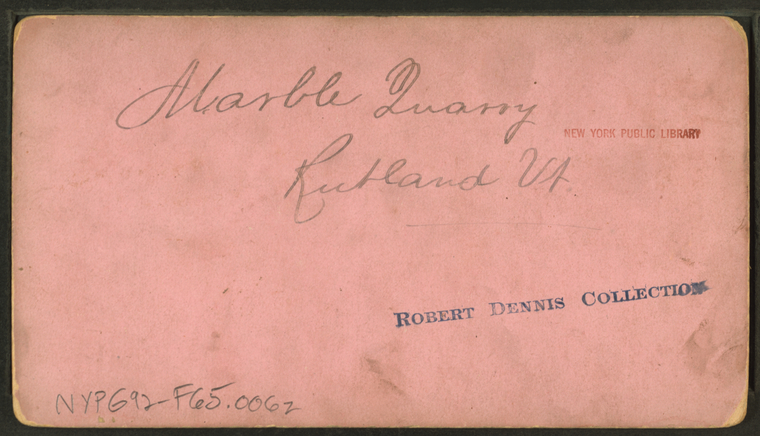 Marble Quarry
NEW YORK PUBLIC LIBRARY
Rutland Vt.
ROBERT DENNIS COLLECTION
NYPG92-F65.0062